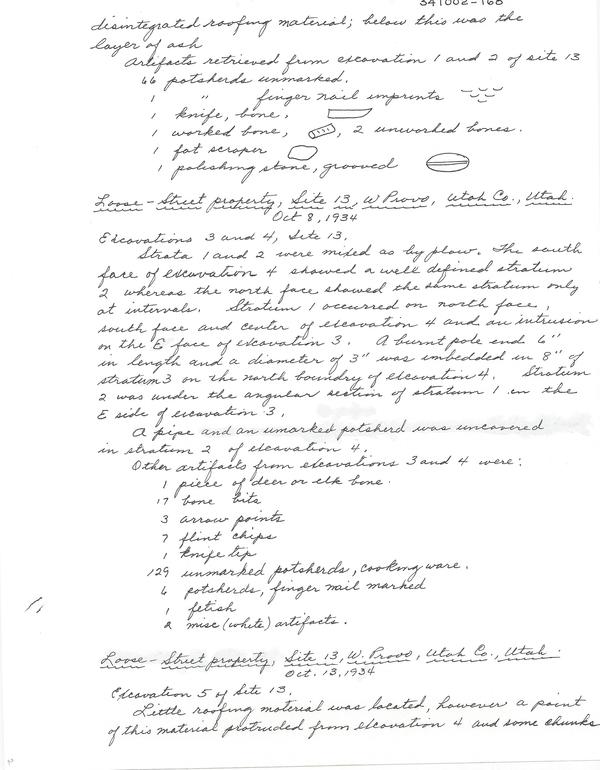 341002-168
disintegrated roofing material; below this was the
layer of ash
Artifacts retrieved from excavation 1 and 2 of site 13
66 potsherds unmarked.
1 " finger nail imprints
1 knife, bone.
1 worked bone, , 2 unworked bones.
1 fat scraper
1 polishing stone, grooved
Loose-Street property, Site 13, W Provo, Utah Co., Utah.
Oct 8, 1934
Excavations 3 and 4, Site 13.
Strata 1 and 2 were mixed as by plow. The south
face of excavation 4 showed a well defined stratum
2 whereas the north face showed the same stratum only
at intervals. Stratum 1 occurred on north face,
south face and center of excavation 4 and an intrusion
on the E face of excavation 3. A burnt pole end 6"
in length and a diameter of 3" was imbedded in 8" of
stratum 3 on the north boundry of excavation 4. Stratum
2 was under the angular section of stratum 1 on the
E side of excavation 3.
A pipe and an umarked potsherd was uncovered
in stratum 2 of excavation 4.
Other artifacts from excavations 3 and 4 were:
1 piece of deer or elk bone.
17 bone bits
3 arrow points
7 flint chips
1 knife tip
129 unmarked potsherds, cooking ware.
6 potsherds, finger nail marked
1 fetish
2 misc (white) artifacts.
Loose-Street property, Site 13, W. Provo, Utah Co., Utah.
Oct. 13, 1934
Excavation 5 of Site 13.
Little roofing material was located, however a point
of this material protruded from excavation 4 and some chunks